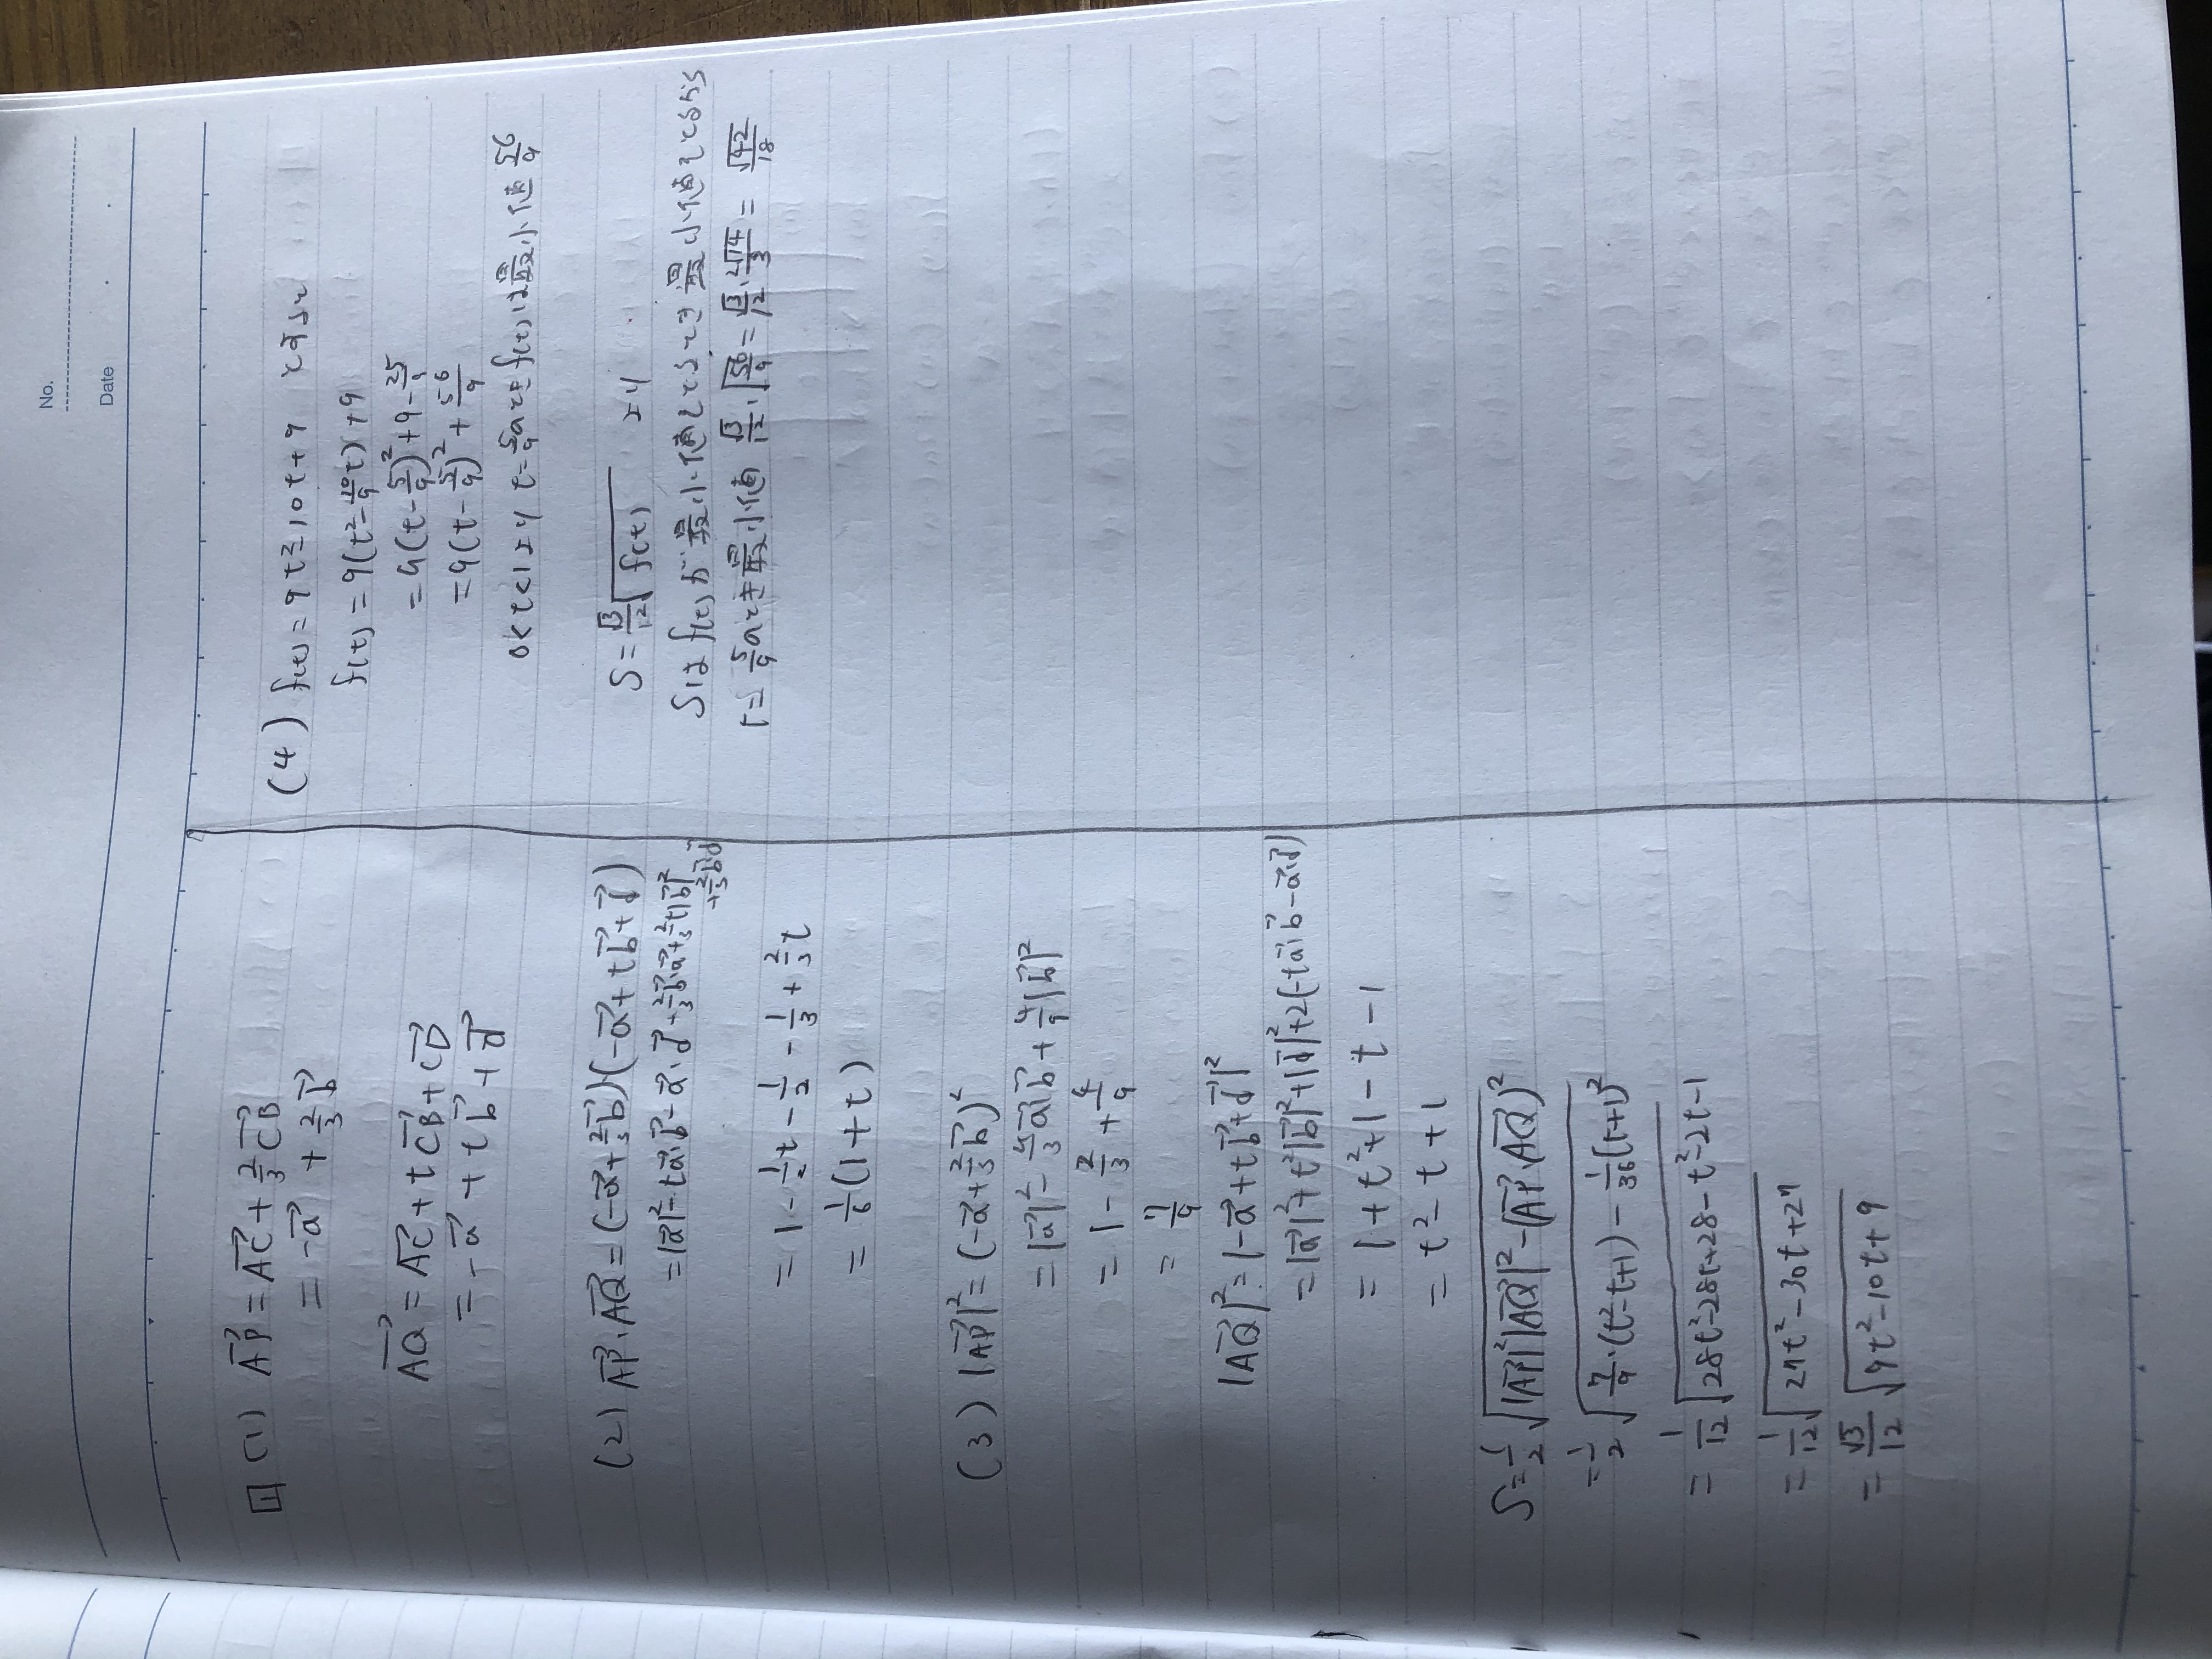 No.
Date
1 (1) AP→ = AC→ + 2/3 CB→
= -a→ + 2/3 b→
AQ→ = AC→ + tCB→ + CD→
= -a→ + tb→ + d→
(2) AP→・AQ→ = (-a→ + 2/3 b→)・(-a→ + tb→ + d→)
= |a→|² - ta→・b→ - a→・d→ + 2/3 b→・a→ + 2/3 t|b→|²
+ 2/3 b→・d→
= 1 - 1/2 t - 1/2 - 1/3 + 2/3 t
= 1/6 (1+t)
(3) |AP→|² = (-a→ + 2/3 b→)²
= |a→|² - 4/3 a→・b→ + 4/9 |b→|²
= 1 - 2/3 + 4/9
= 7/9
|AQ→|² = |-a→ + tb→ + d→|²
= |a→|² + t²|b→|² + |d→|² + 2(-ta→・b→ - a→・d→)
= 1 + t² + 1 - t - 1
= t² - t + 1
S = 1/2 √(|AP→|²|AQ→|² - (AP→・AQ→)²)
= 1/2 √(7/9・(t²-t+1) - 1/36 (t+1)²)
= 1/12 √(28t²-28t+28-t²-2t-1)
= 1/12 √(27t²-30t+27)
= √3/12 √(9t²-10t+9)
(4) f(t) = 9t²-10t+9 とすると
f(t) = 9(t² - 10/9 t) + 9
= 9(t - 5/9)² + 9 - 25/9
= 9(t - 5/9)² + 56/9
0<t<1より t=5/9のときf(t)は最小値 56/9
S = √3/12 √f(t) より
Sはf(t)が最小値をとるとき最小値をとるから
t = 5/9のとき最小値 √3/12・√(56/9) = √3/12・2√14/3 = √42/18